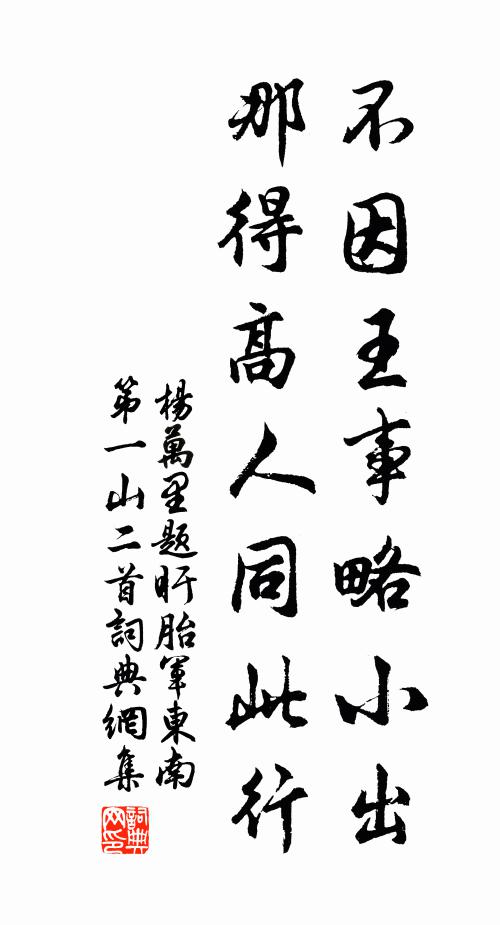 不因王事略小出
那得高人同此行
楊萬里題盱眙軍東南
第一山二首詞典網集
詞典網印